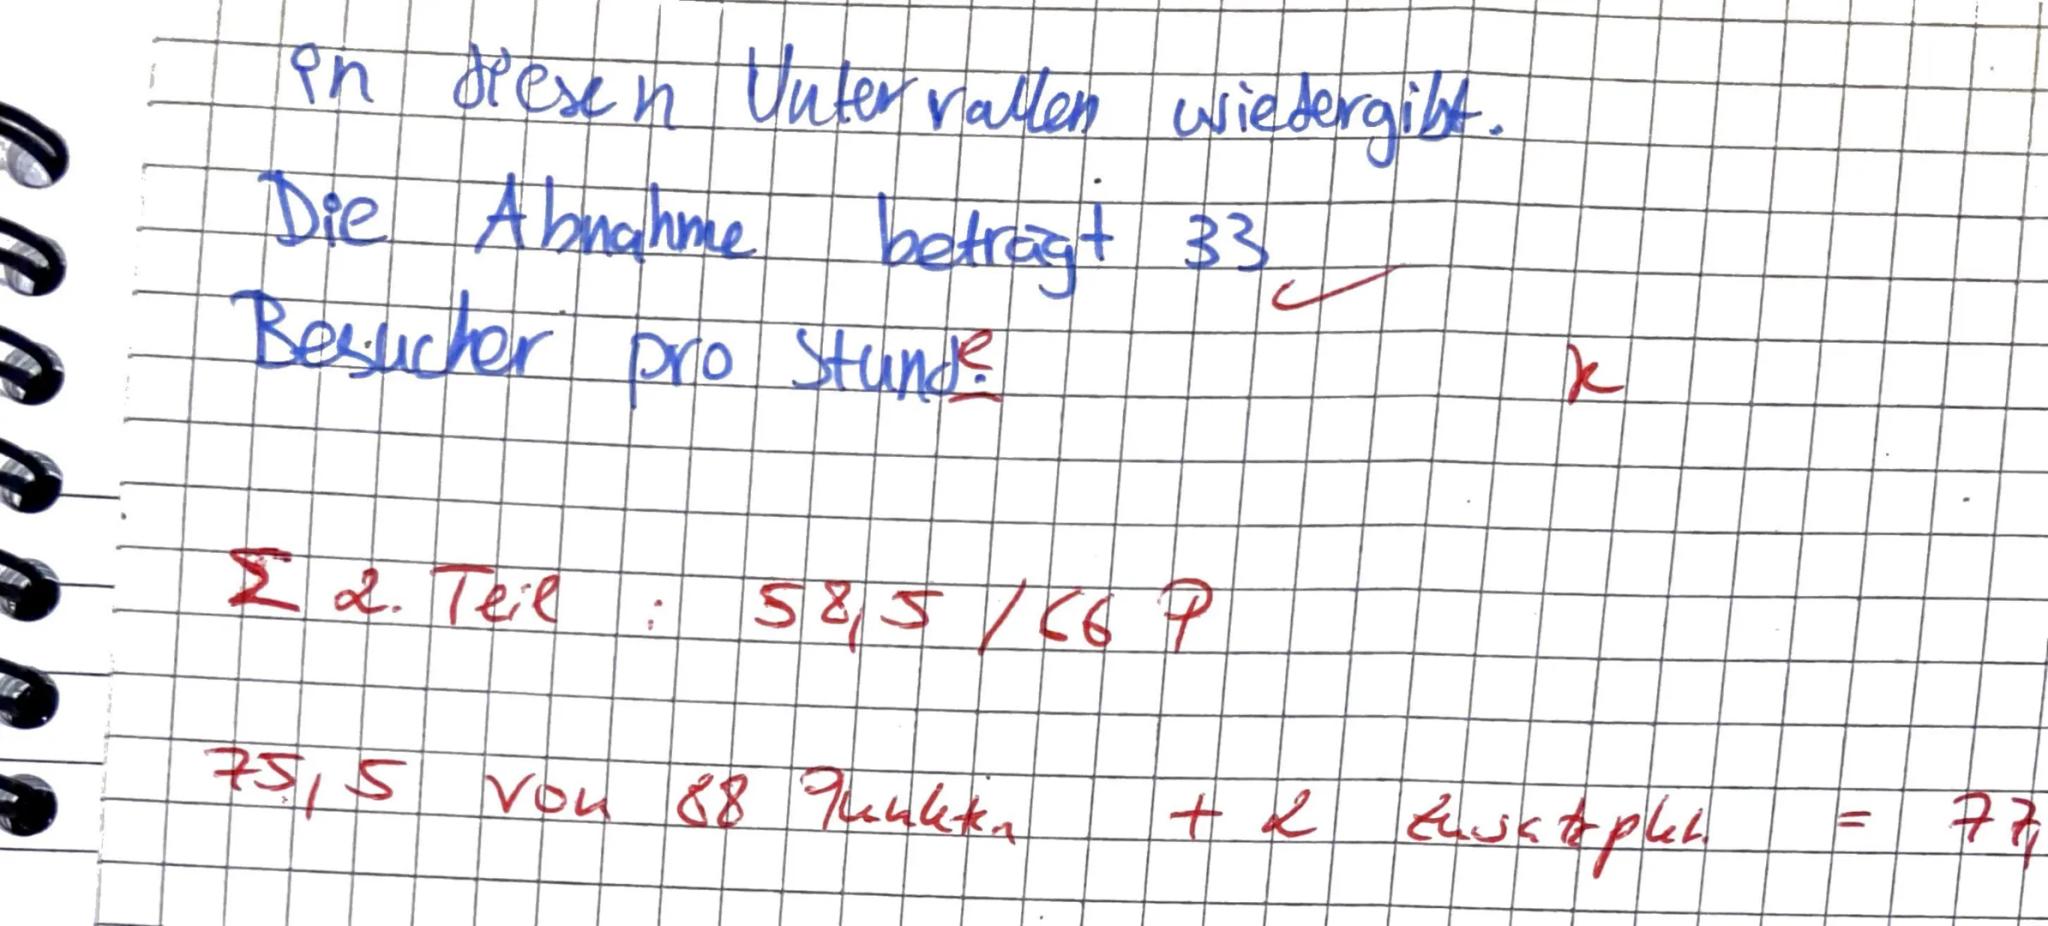 in diesen Untervallen wiedergibt.
Die Abnahme beträgt 33
Besucher pro Stunde.
k
Σ 2. Teil : 58,5 / 66 P
75,5 von 88 Punkten + 2 Zusatzpkt. = 77,